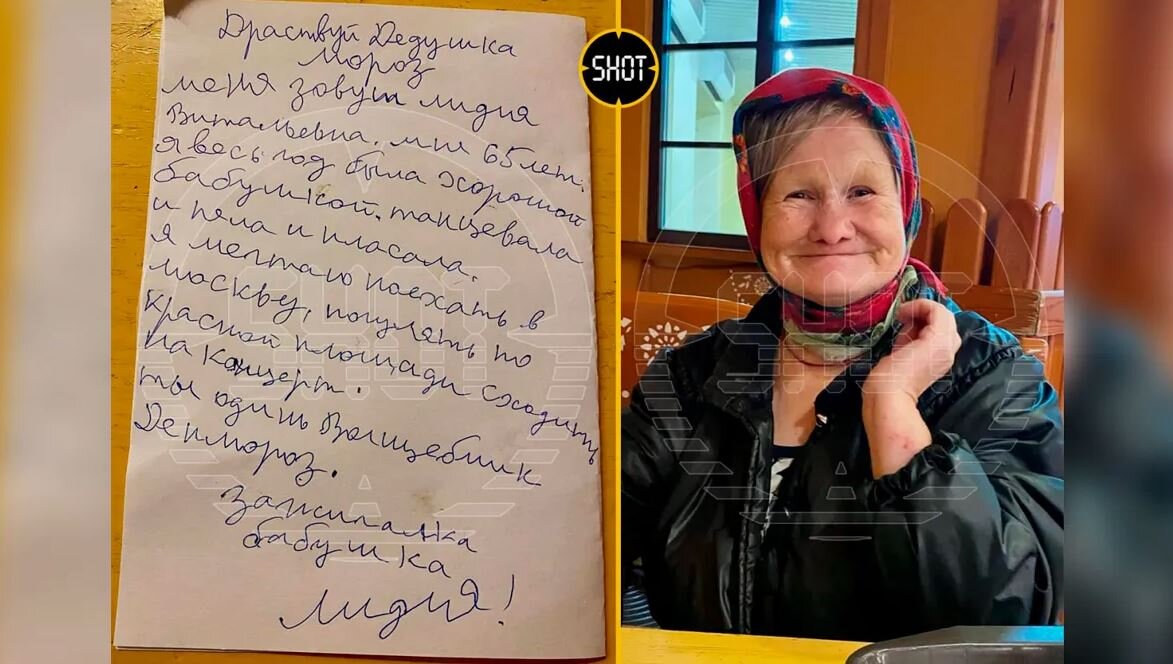 Драствуй Дедушка
Мороз
меня зовут лидия
Витальевна. мне 65 лет.
я весь год была хорошой
бабушкой. танцевала
и пела и пласала.
я мечтаю поехать в
москву, погулять по
Красной площади сходить
на концерт.
ты одинь Вольщебник
Денмороз.
зажигалка
бабушка
лидия!
SHOT